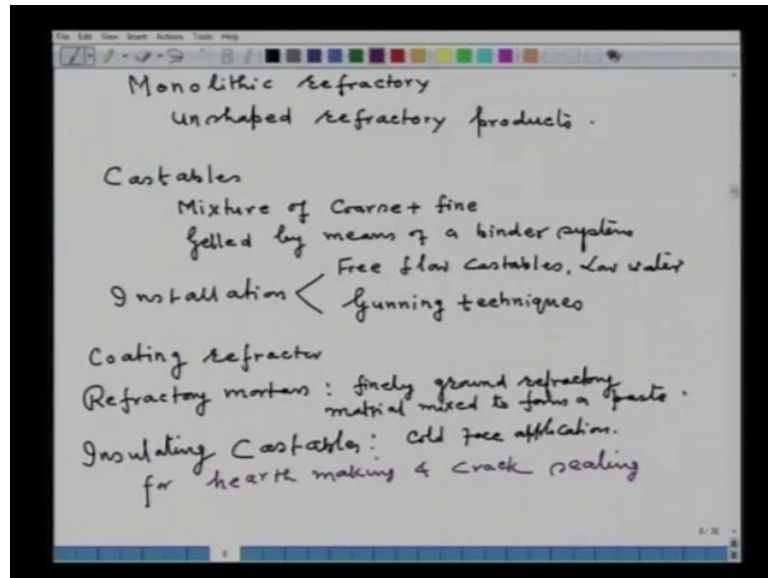 File Edit View Insert Actions Tools Help
Monolithic refractory
unshaped refractory products.
Castables
Mixture of Coarse + fine
Gelled by means of a binder system
Free flow castables, Low water
Installation <
Gunning techniques
Coating refractor
Refractory mortars : finely ground refractory
material mixed to form a paste.
Insulating Castables : Cold face application.
for hearth making & crack sealing